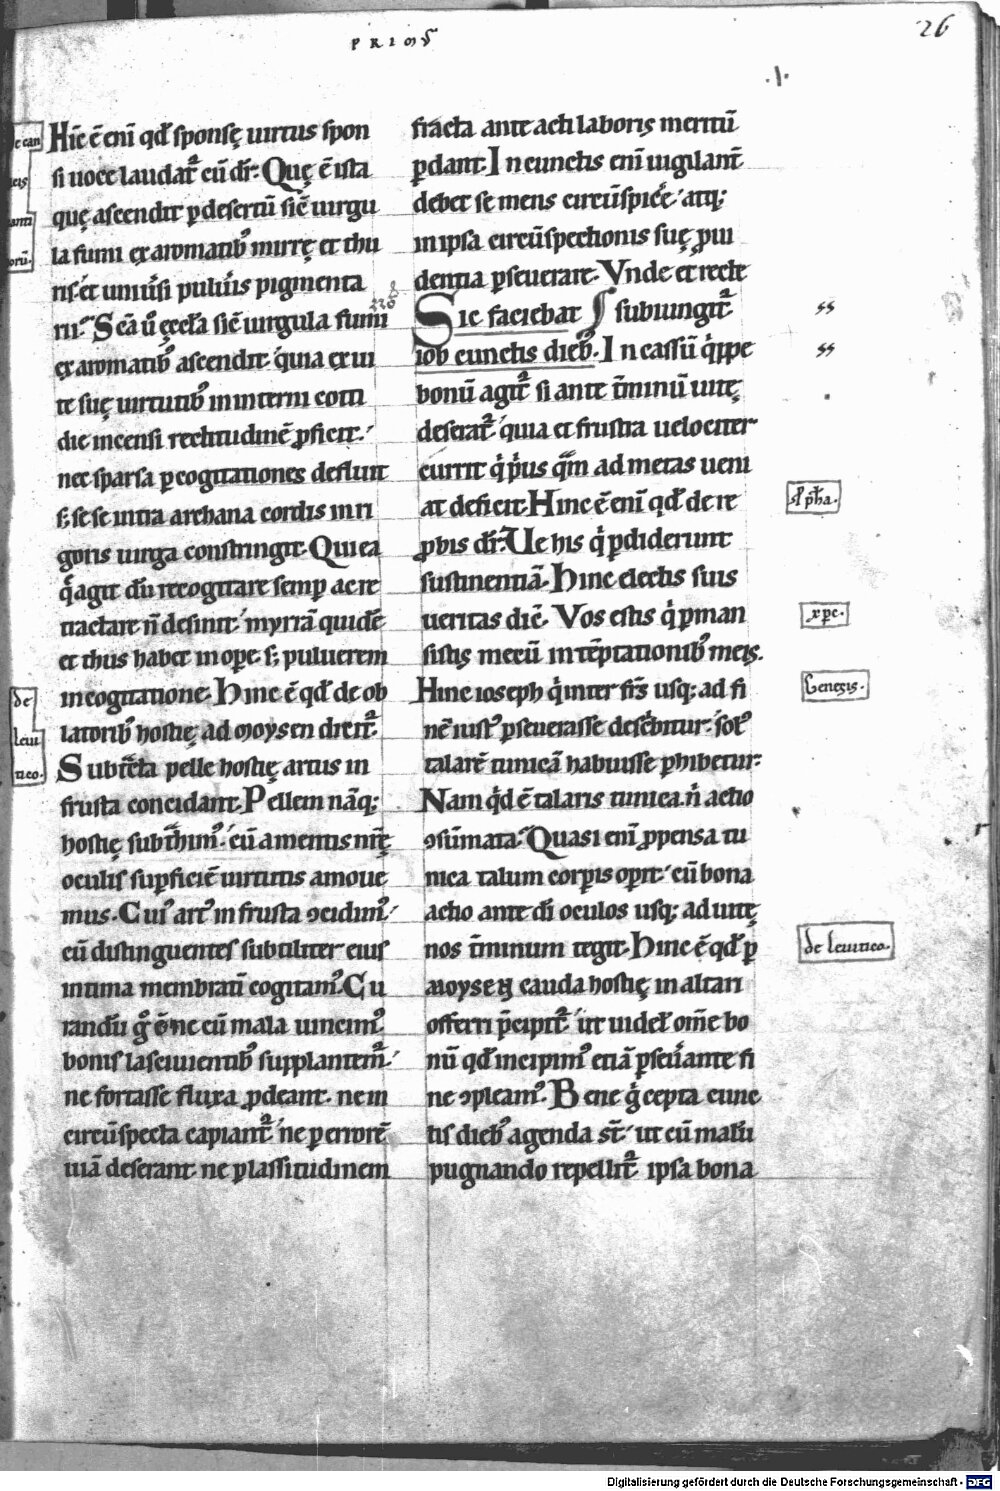 PRIMꝰ
26
.I.
Hīc ē enī qd̄ sponsę uirtus spon
si uoce laudat᷑ cū dr̄: Quę ē ista
quę ascendit ꝑ desertū sic̄ uirgu
la fumi ex aromatibꝰ mirrę et thu
ris et uniuͥsi puluͥis pigmenta
rii: Scā u̾ ęccl̄a sic̄ uirgula fumi
ex aromatibꝰ ascendit quia ex ui
tę suę uirtutibꝰ in interni coti
die incensi rectitudinē ꝓficit.
nec sparsa ꝑ cogitationes defluit
s; sese intra archana cordis in ri
goris uirga constringit. Qui ea
q̄ agit dū recogitare semꝑ ac re
tractare n̄ desinit, myrrā quidē
et thus habet in oꝑe. s; puluerem
in cogitatione. Hinc ē qd̄ de ob
latoribꝰ hostię ad moysen dicit᷑.
Subtr̄cta pelle hostię artus in
frusta concidant. Pellem nāq;
hostię subtͣhimꝰ. cū a mentis nr̄ę
oculis suꝑficiē uirtutis amoue
mus. Cuiꝰ artꝰ in frusta ꝯcidimꝰ
cū distinguentes subtiliter eius
intima membratī cogitamꝰ. Cu
randū g̊ ē ne cū mala uincimꝰ,
bonis lasciuientibꝰ supplantem᷑
ne fortasse fluxa ꝓdeant. ne in
circūspecta capiant᷑ ne ꝑ errorē
uiā deserant. ne ꝑ lassitudinem
fracta ante acti laboris meritū
ꝑdant. In cunctis enī uigilant̄
debet se mens circūspicͤe atq;
in ipsa circūspectionis suę ꝓui
dentia ꝑseuerare. Vnde et recte
Sic faciebat subiungit᷑
iob cunctis diebꝰ. In cassū qͥppe
bonū agit᷑ si ante t̄minū uitę
deserat᷑ quia et frustra uelociter
currit qͥ pͥus qͣm ad metas ueni
at deficit. Hinc ē enī qd̄ de re
ꝓbis dr̄: Ue his qͥ ꝑdiderunt
sustinentiā. Hinc electis suis
ueritas dic̄. Vos estis qͥ ꝑman
sistis mecū in tēptationibꝰ meis.
Hinc ioseph qͥ inter fr̄s usq; ad fi
nē iustꝰ ꝑseuerasse describitur. solꝰ
talarē tunicā habuisse ꝑhibetur:
Nam qͥd ē talaris tunica. nͥ actio
ꝯsūmata. Quasi enī ꝓpensa tu
nica talum corꝑis oꝑit cū bona
actio ante dī oculos usq; ad uitę
nos t̄minum tegit. Hinc ē qd̄ ꝑ
moysen cauda hostię in altari
offerri p̄cipit᷑ ut uidel; om̄e bo
nū qd̄ incipimꝰ etiā ꝑseuͥante fi
ne ꝯpleamꝰ. Bene g̊ cepta cunc
tis diebꝰ agenda st̄ ut cū malū
pugnando repellit᷑ ipsa bona
de
leui
tico.
xpc.
Genesis.
de leuitico.
Digitalisierung gefördert durch die Deutsche Forschungsgemeinschaft - DFG